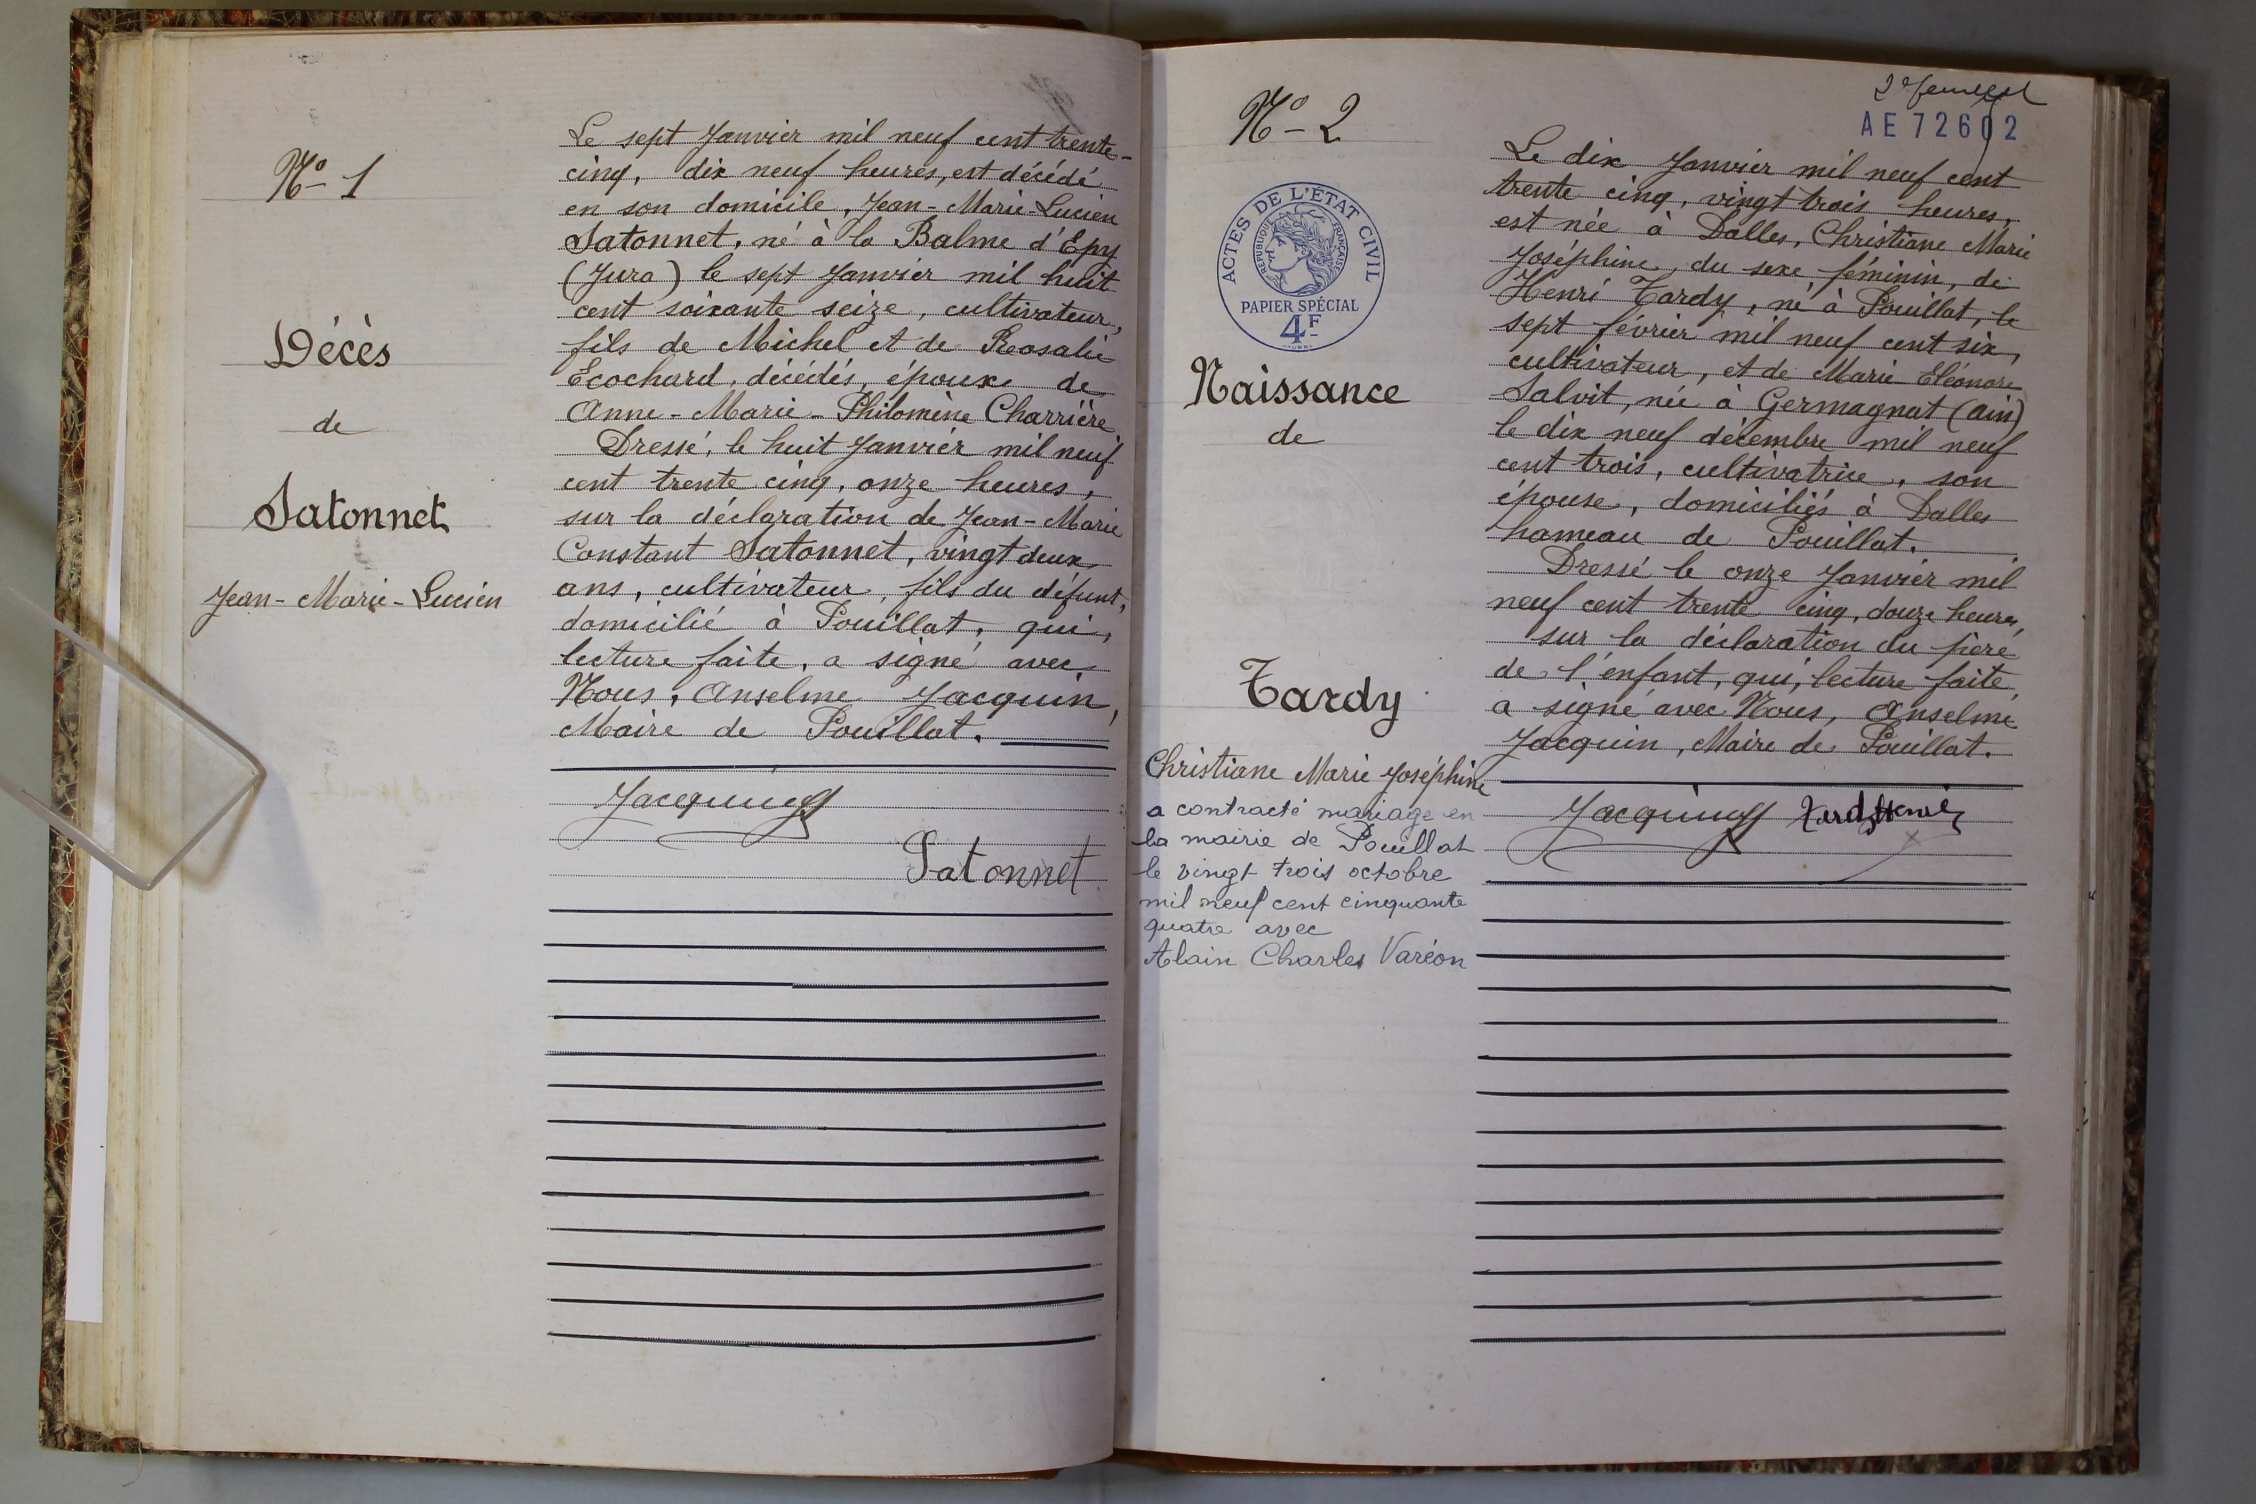 Nº 1
Décès
de
Satonnet
Jean-Marie-Lucien
Le sept Janvier mil neuf cent trente-
cinq, dix neuf heures, est décédé
en son domicile, Jean-Marie-Lucien
Satonnet, né à la Balme d'Epy
(Jura) le sept Janvier mil huit
cent soixante seize, cultivateur,
fils de Michel et de Rosalie
Ecochard, décédés, époux de
Anne-Marie-Philomène Charrière
Dressé, le huit Janvier mil neuf
cent trente cinq, onze heures,
sur la déclaration de Jean-Marie
Constant Satonnet, vingt deux
ans, cultivateur, fils du défunt,
domicilié à Pouillat, qui,
lecture faite, a signé avec
Nous, Anselme Jacquin,
Maire de Pouillat.
Jacquin
Satonnet
2e feuillet
AE 72602
Nº 2
ACTES DE L'ÉTAT CIVIL
RÉPUBLIQUE FRANÇAISE
PAPIER SPÉCIAL
4F
Naissance
de
Tardy
Christiane Marie Joséphine
a contracté mariage en
la mairie de Pouillat
le vingt trois octobre
mil neuf cent cinquante
quatre avec
Alain Charles Varéon
Le dix Janvier mil neuf cent
trente cinq, vingt trois heures,
est née à Dalles, Christiane Marie
Joséphine, du sexe féminin, de
Henri Tardy, né à Pouillat, le
sept février mil neuf cent six,
cultivateur, et de Marie Eléonore
Salvit, née à Germagnat (Ain)
le dix neuf décembre mil neuf
cent trois, cultivatrice, son
épouse, domiciliés à Dalles
hameau de Pouillat.
Dressé le onze Janvier mil
neuf cent trente cinq, douze heures,
sur la déclaration du père
de l'enfant, qui, lecture faite,
a signé avec Nous, Anselme
Jacquin, Maire de Pouillat.
Jacquin Tardy Henri